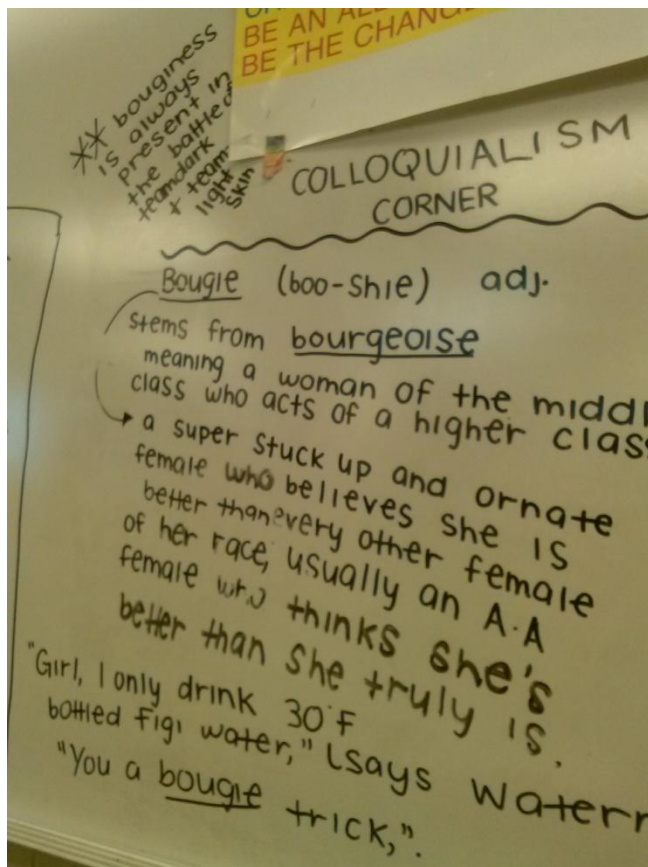 BE AN
BE THE CHANGE
** bouginess
is always
present in
the battle of
teamdark
+ team
light
skin
COLLOQUIALISM
CORNER
Bougie (boo-shie) adj.
stems from bourgeoise
meaning a woman of the middl
class who acts of a higher class
a super stuck up and ornate
female who believes she is
better than every other female
of her race, usually an A.A
female who thinks she's
better than she truly is.
"Girl, I only drink 30°F
bottled figi water," (says Waterr
"You a bougie trick,".